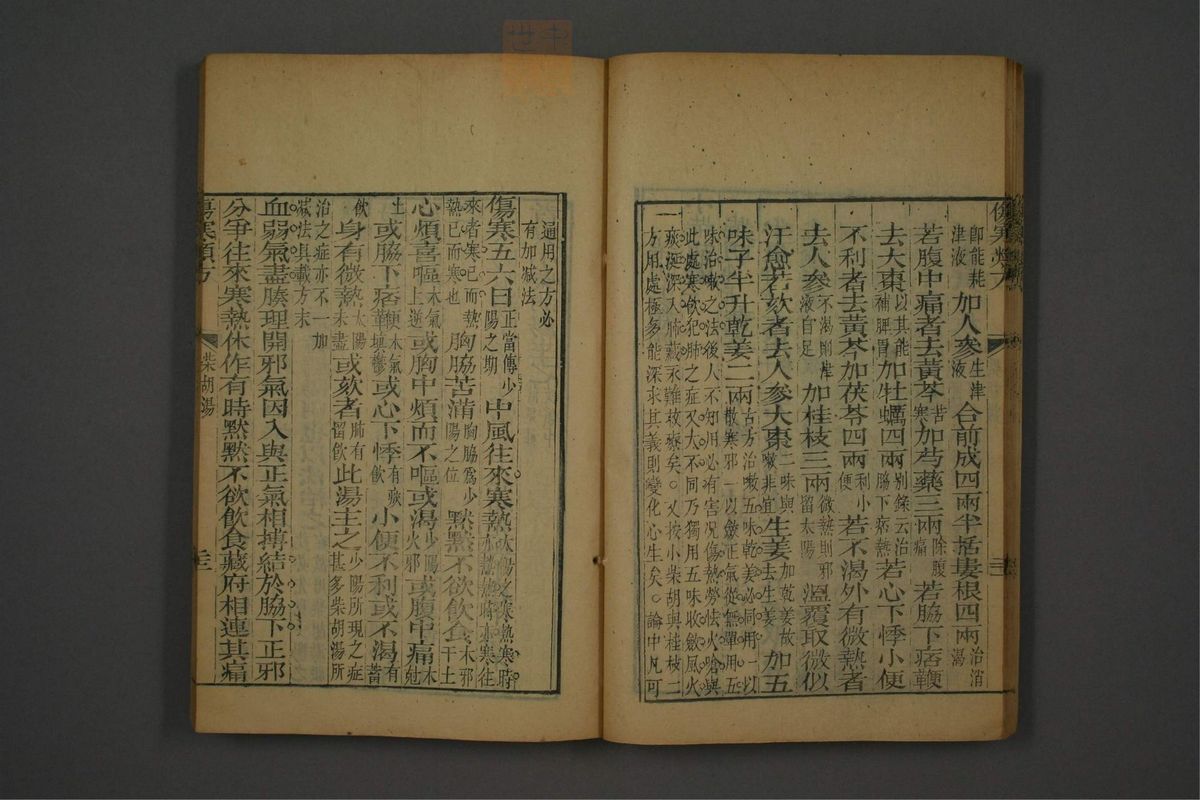 傷寒類方
即能耗津液 加人參生津液 合前成四兩半括蔞根四兩治消渴
若腹中痛者去黃芩苦寒加芍藥三兩除腹痛 若脇下痞鞕
去大棗以其能補脾胃加牡蠣四兩別錄云治脇下痞熱若心下悸小便
不利者去黃芩加茯苓四兩利小便 若不渴外有微熱者
去人參不渴則津液自足 加桂枝三兩微熱則邪留太陽 溫覆取微似
汗愈若欬者去人參大棗二味與嗽非宜生姜加乾姜故去生姜 加五
味子半升乾姜二兩古方治嗽五味乾姜必同用一以散寒邪一以斂正氣從無單用五
味治嗽之法後人不知用必有害況傷熱勞怯火嗆與
此處寒飲犯肺之症又大不同乃獨用五味收斂風火
痰涎深入肺藏永難救療矣。又按小柴胡與桂枝二
方用處極多能深求其義則變化心生矣。論中凡可
通用之方必有加减法
傷寒五六日正當傳少陽之期 中風往來寒熱太陽之寒熱寒時亦熱熱時亦寒往
來者寒已而熱熱已而寒也 胸脇苦滿胸脇爲少陽之位 默默不欲飲食木邪干土
心煩喜嘔木氣上逆或胸中煩而不嘔或渴少陽火邪 或腹中痛木尅
土 或脇下痞鞕木氣填鬱或心下悸有痰飲 小便不利或不渴有
飲 身有微熱太陽未盡或欬者肺有留飲此湯主之少陽所現之症甚多柴胡湯所
治之症亦不一加減法具載方末
血弱氣盡腠理開邪氣因入與正氣相搏結於脇下正邪
分爭往來寒熱休作有時默默不欲飲食藏府相連其痛
傷寒類方 柴胡湯